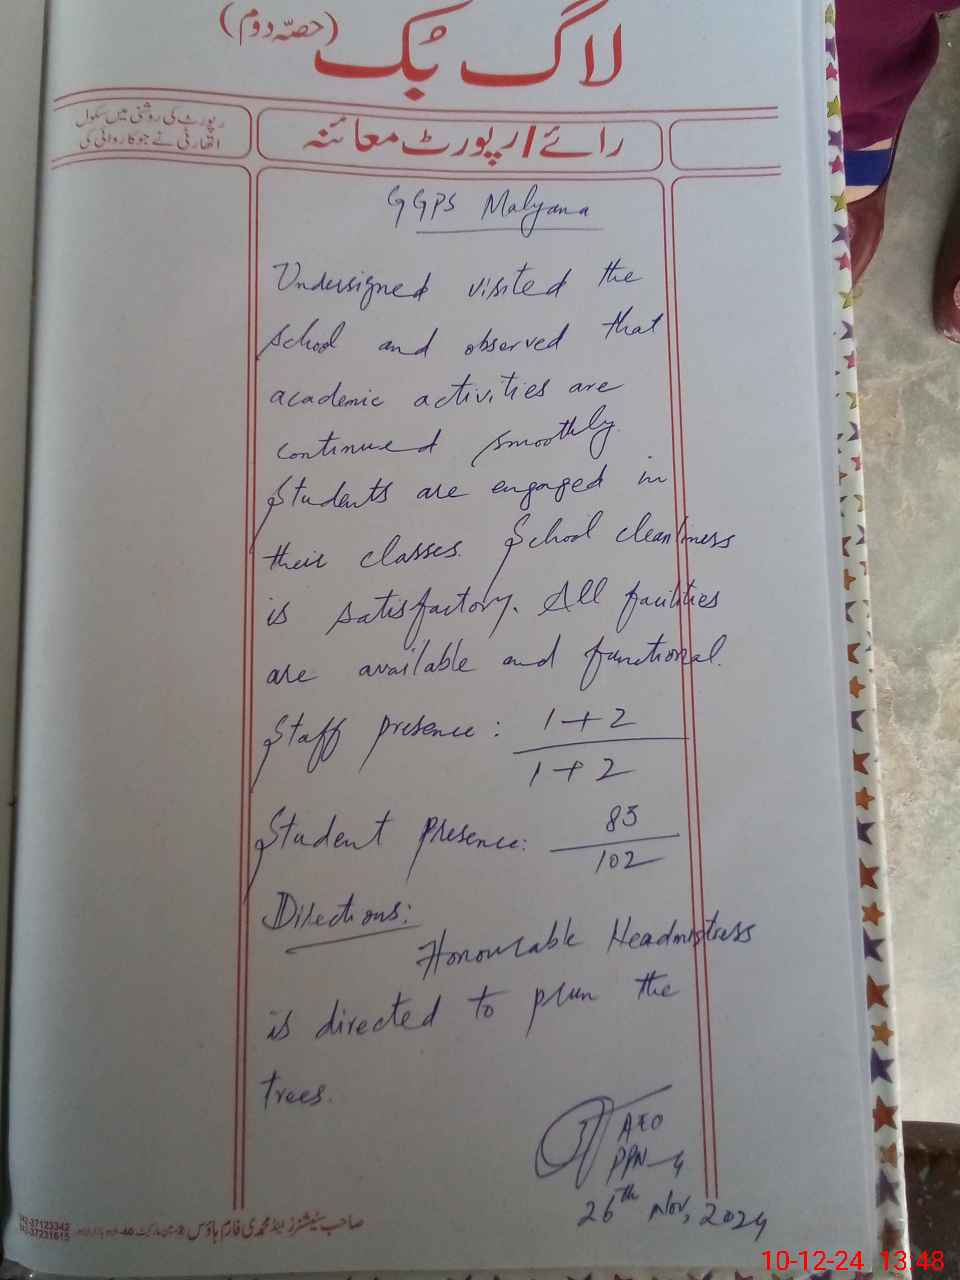 لاگ بُک (حصّہ دوم)
رپورٹ کی روشنی میں سکول
اتھارٹی نے جو کاروائی کی
رائے/رپورٹ معائنہ
GGPS Malyana
Undersigned visited the
school and observed that
academic activities are
continued smoothly.
Students are engaged in
their classes. School cleanliness
is satisfactory. All facilities
are available and functional.
Staff presence: 1+2
1+2
Student presence: 83
102
Directions:
Honourable Headmistress
is directed to plun the
trees.
AEO
PPN-4
26th Nov, 2024
042-37123342
042-37231615
10-12-24 13:48